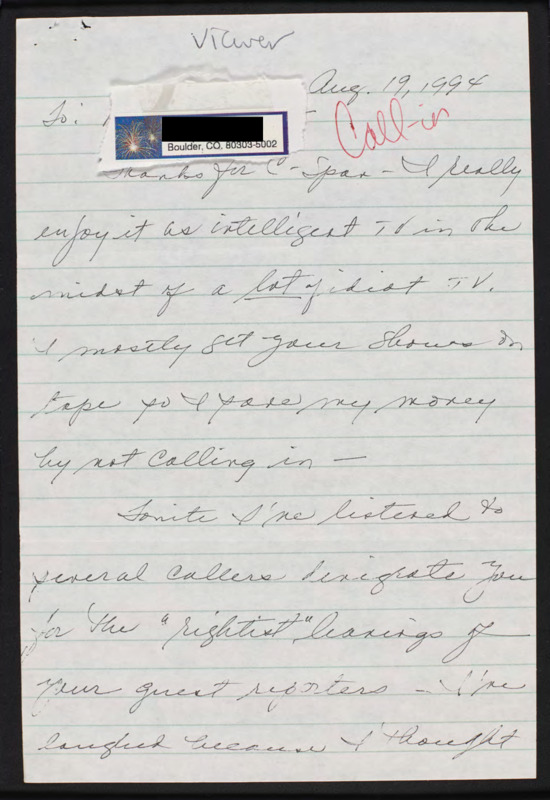 Viewer
Aug. 19, 1994
To:
Call-in
Boulder, CO. 80303-5002
Thanks for C-Span - I really
enjoy it as intelligent TV in the
midst of a lot of idiot TV.
I mostly get your shows on
tape so I save my money
by not calling in —
Tonite I've listened to
several callers denigrate you
for the "rightist" leanings of
your guest reporters - I've
laughed because I thought